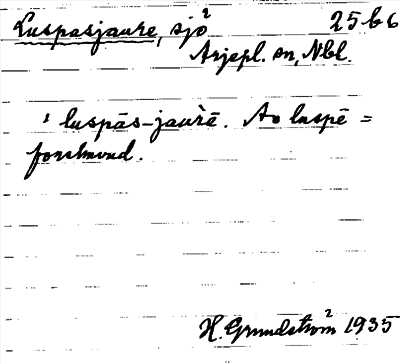 Luspasjaure, sjö 25 b 6
Arjepl. sn, Nbl.
' luspās-jaùrē. Av luspē =
forsmund.
H. Grundström 1935